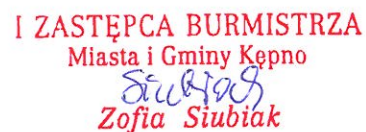 I ZASTĘPCA BURMISTRZA
Miasta i Gminy Kępno
Siubiak
Zofia Siubiak